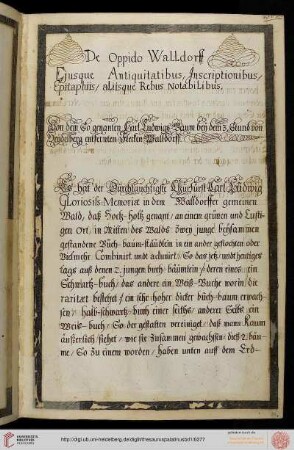 De Oppido Walldorff
Ejusque Antiquitatibus, Inscriptionibus,
Epitaphiis, aliisque Rebus Notabilibus.
Von dem So genanten Carl Ludwigs Baum bey dem 3. Stund von
Heydelberg entfernten Flecken Walldorff.
Es hat der Durchlauchtigste Churfürst Carl Ludwig
Gloriosis. Memoriæ in dem Walldorffer gemeinen
Wald, daß Hoch-holtz genant, an einem grünen und Lusti-
gen Ort, in Mitten des Walds zwey junge beysammen
gestandene Büch-baum-stäudlein in ein ander geflochten oder
Vielmehr Combinirt und
tags auß denen 2. jungen buch-bäumlein, deren eines ein
Schwartz-buch, das andere ein Weiß-Buche worin die
rarität bestehet, ein sehr hoher dicker büch-baum erwach-
sen, halb-schwartz-buch einer seiths, anderer Seits ein
Weis-buch, So der gestalten vereiniget, daß wann Mann
äusserlich siehet, wie sie Zusammen gewachsen, diese 2. bäu-
me, So Zu einem worden, haben unten auff dem Erd-
http://digi.ub.uni-heidelberg.de/diglit/thesauruspalatinusbd1/0277